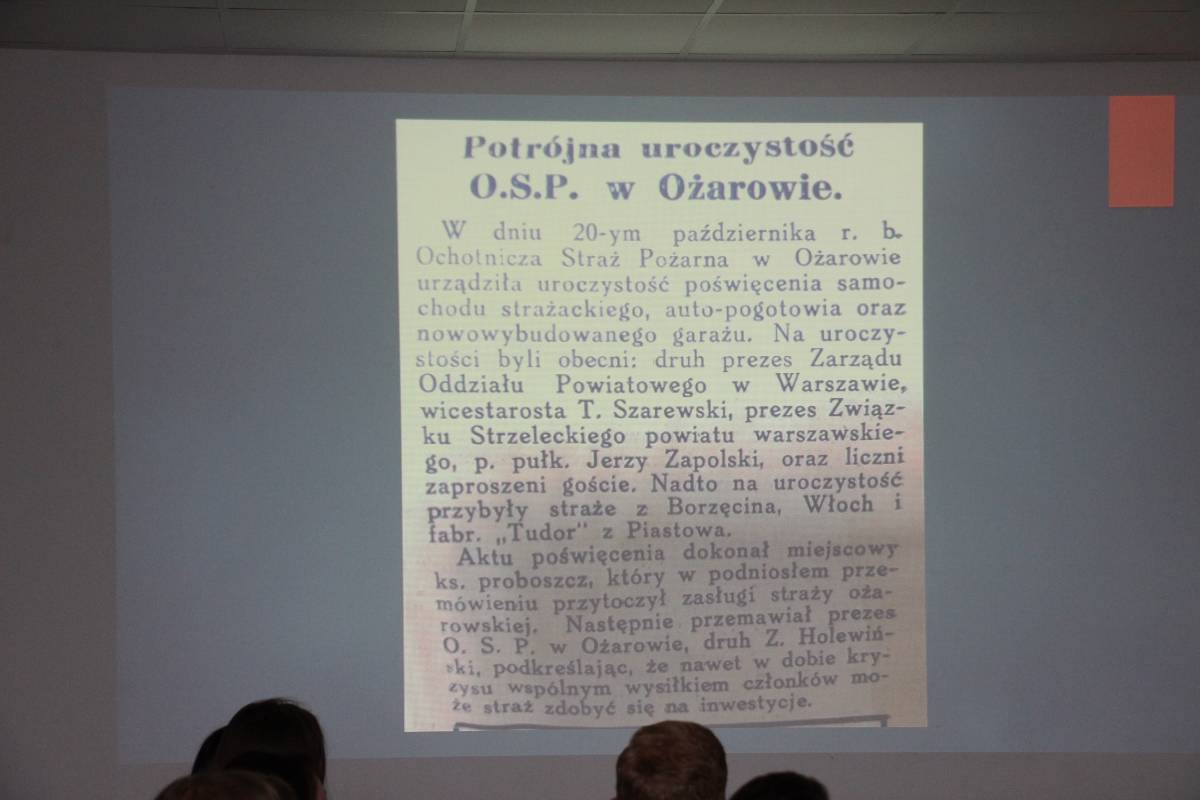 Potrójna uroczystość
O.S.P. w Ożarowie.
W dniu 20-ym października r. b.
Ochotnicza Straż Pożarna w Ożarowie
urządziła uroczystość poświęcenia samo-
chodu strażackiego, auto-pogotowia oraz
nowowybudowanego garażu. Na uroczy-
stości byli obecni: druh prezes Zarządu
Oddziału Powiatowego w Warszawie,
wicestarosta T. Szarewski, prezes Związ-
ku Strzeleckiego powiatu warszawskie-
go, p. pułk. Jerzy Zapolski, oraz liczni
zaproszeni goście. Nadto na uroczystość
przybyły straże z Borzęcina, Włoch i
fabr. „Tudor" z Piastowa.
Aktu poświęcenia dokonał miejscowy
ks. proboszcz, który w podniosłem prze-
mówieniu przytoczył zasługi straży oża-
rowskiej. Następnie przemawiał prezes
O. S. P. w Ożarowie, druh Z. Holewiń-
ski, podkreślając, że nawet w dobie kry-
zysu wspólnym wysiłkiem członków mo-
że straż zdobyć się na inwestycje.